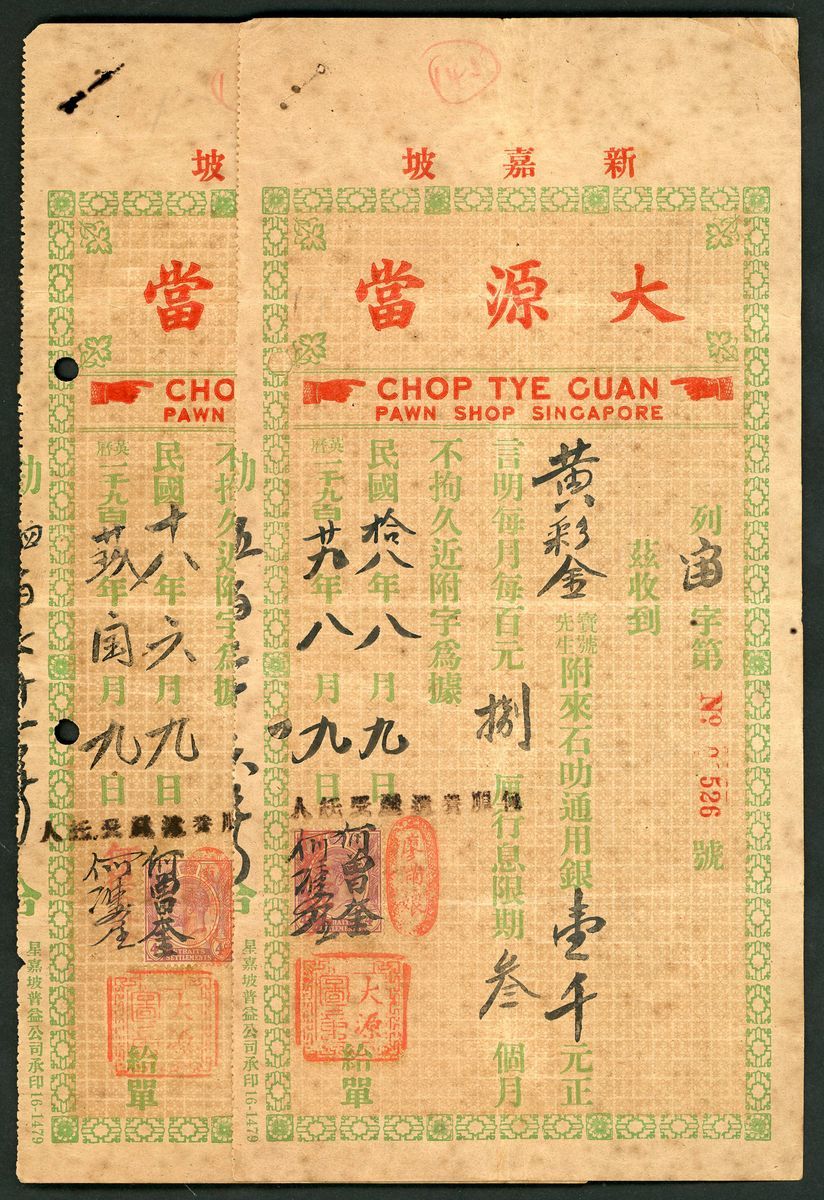 新嘉坡
大源當
CHOP TYE GUAN
PAWN SHOP SINGAPORE
列宙字第 No. 526 號
茲收到
黃彩金 寶號先生 附來石叻通用銀壹千元正
言明每月每百元捌厘行息限期叁個月
不拘久近附字爲據
民國拾八年八月九日
英曆一千九百廿九年八月九日
何曾奎
STRAITS SETTLEMENTS
大源
給單
星嘉坡普益公司承印 16-1479
坡
當
CHO
PAWN
不拘久近附字爲據
民國十八年六月九日
英曆一千九百
年
月九日
何曾奎
STRAITS SETTLEMENTS
大源
給單
星嘉坡普益公司承印 16-1479